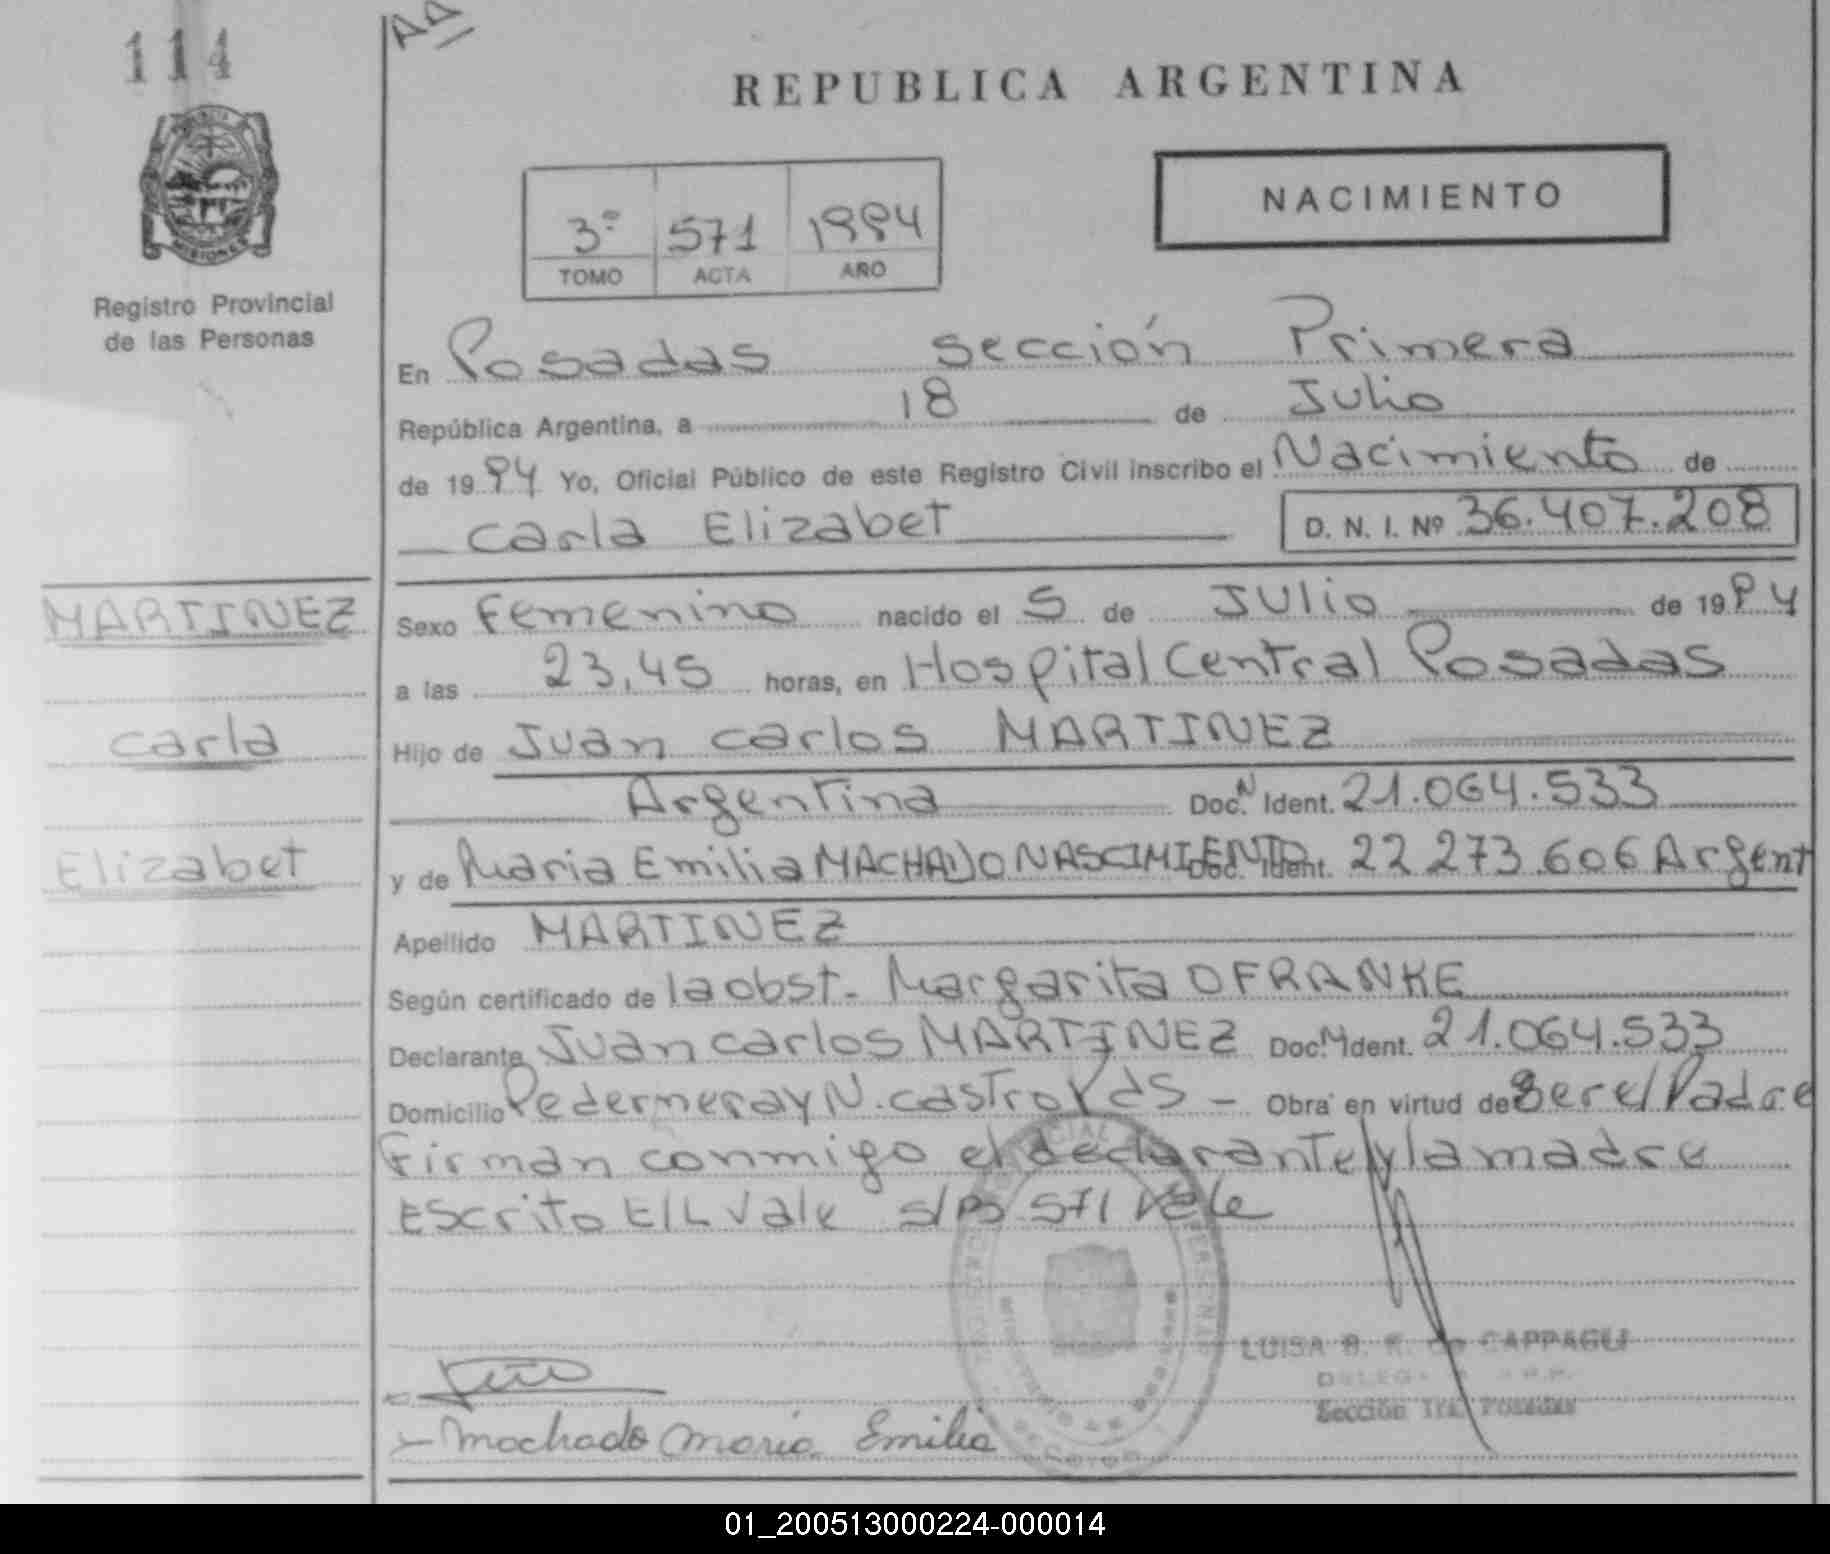 114
AA
REPUBLICA ARGENTINA
NACIMIENTO
3º 571 1994
TOMO ACTA AÑO
MISIONES
Registro Provincial
de las Personas
En Posadas sección Primera
República Argentina, a 18 de Julio
de 1994 Yo, Oficial Público de este Registro Civil inscribo el Nacimiento de
Carla Elizabet D. N. I. Nº 36.407.208
MARTINEZ
Carla
Elizabet
Sexo Femenino nacido el 5 de Julio de 1994
a las 23,45 horas, en Hospital Central Posadas
Hijo de Juan Carlos MARTINEZ
Argentina Doc. N Ident. 21.064.533
y de Maria Emilia MACHADO NASCIMIENTO Doc. Ident. 22 273.606 Argent
Apellido MARTINEZ
Según certificado de la obst. Margarita O FRANKE
Declarante Juan Carlos MARTINEZ Doc. N Ident. 21.064.533
Domicilio Pedernera y N. Castro Pds - Obra en virtud de Ser el Padre
Firman conmigo el declarante y la madre
Escrito E/L Vale s/B 571 Vale
LUISA B. R. de CAPPAGLI
Sección 1ra. Posadas
Machado Maria Emilia
01_200513000224-000014